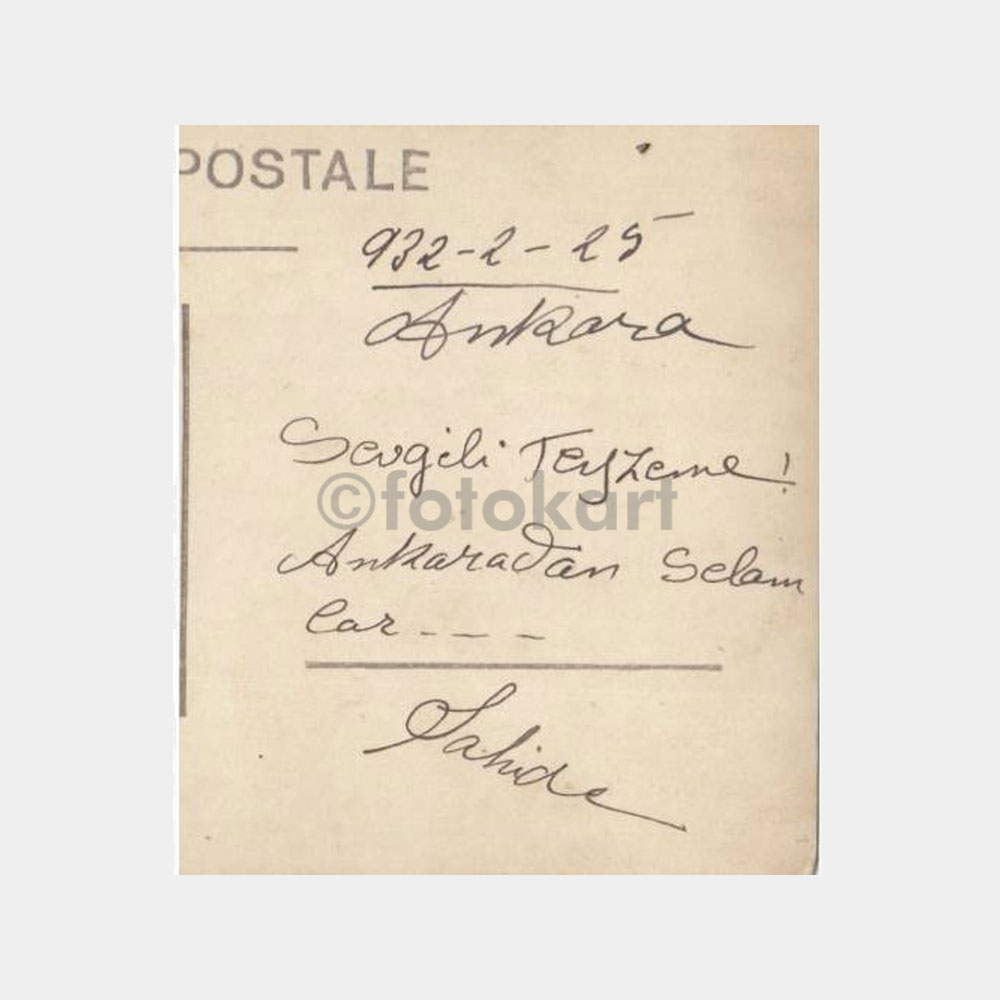 POSTALE
932-2-25
Ankara
Sevgili Teyzeme!
©fotokart
Ankaradan Selam
lar - - -
Sahide